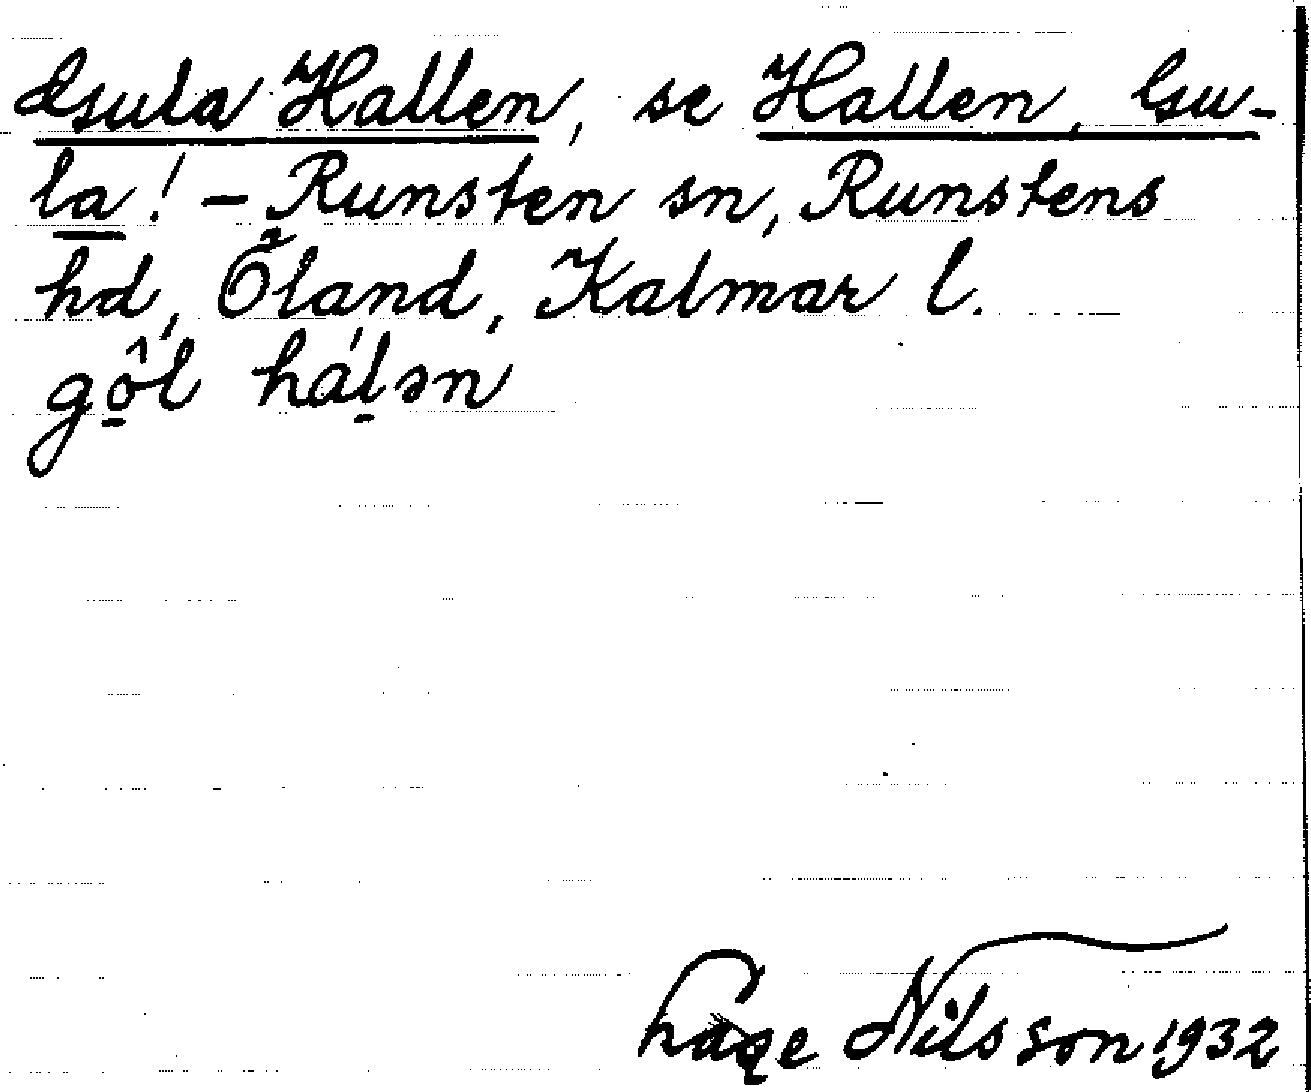 Gula Hallen, se Hallen, Gu-
la! - Runsten sn, Runstens
hd, Öland, Kalmar l.
Nilsson 1932